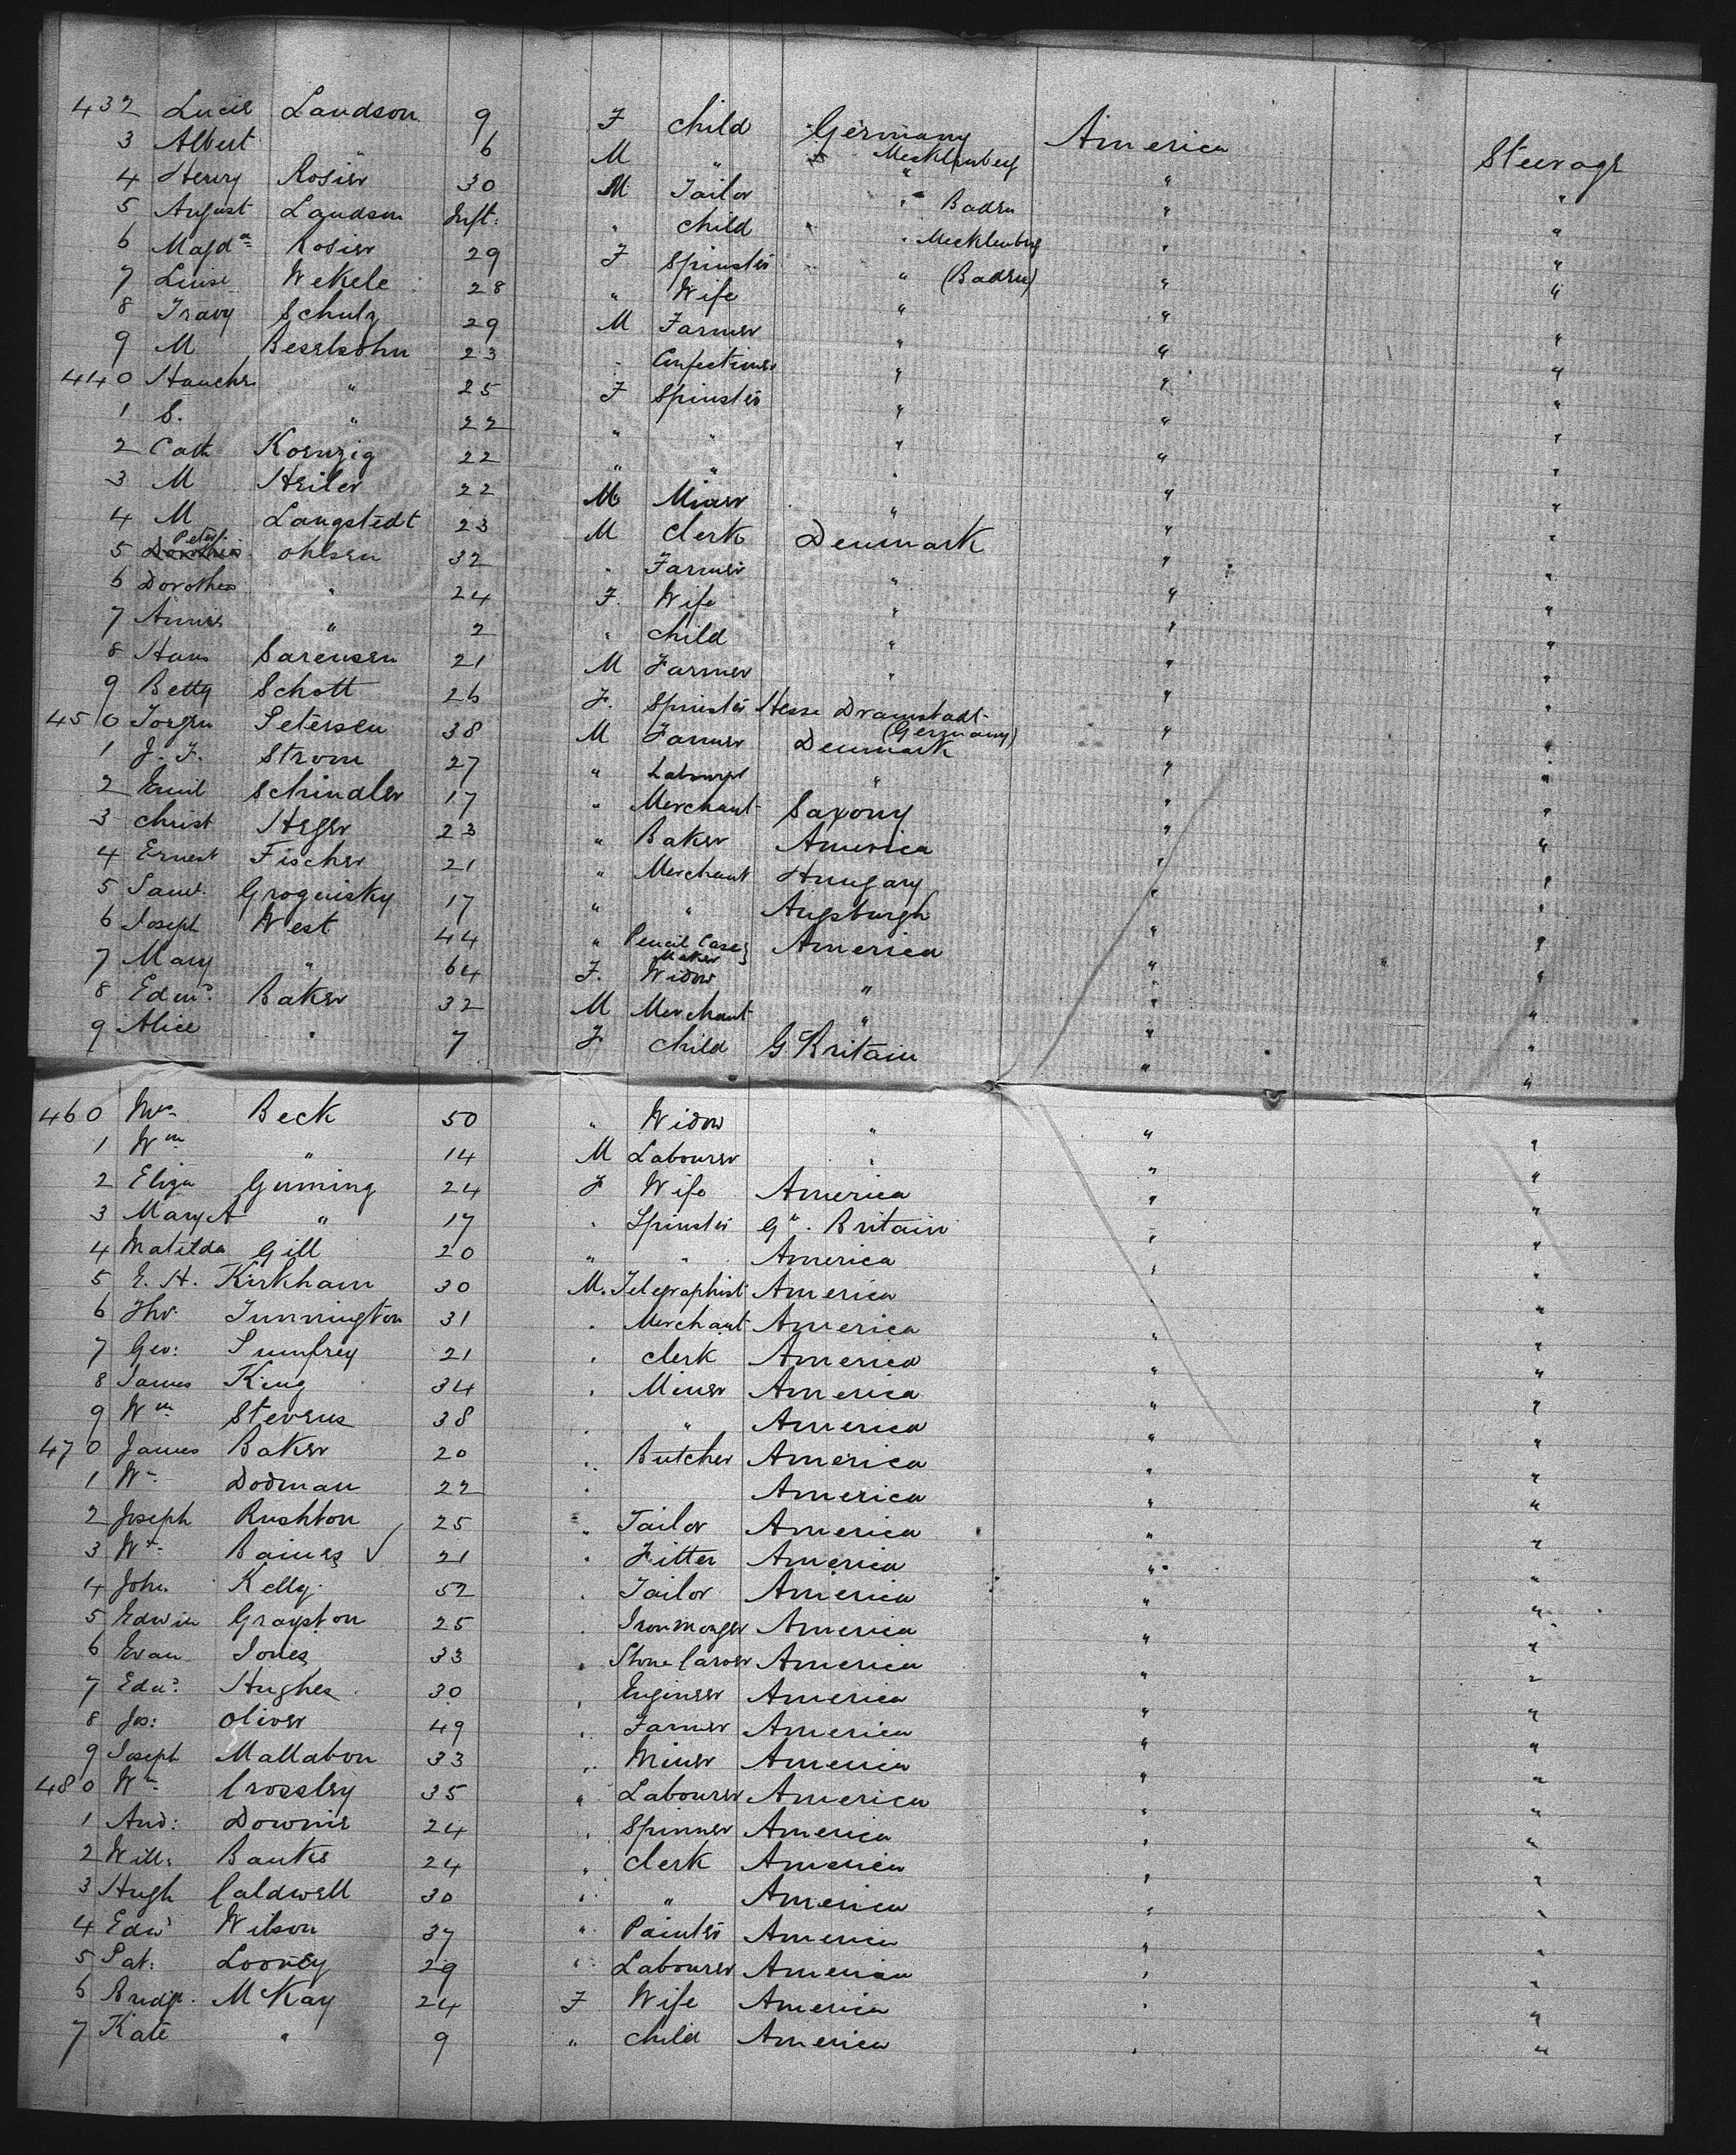 432 Lucie Landson 9 F Child Germany America Steerage
3 Albert " 6 M " " Mecklenberg " "
4 Henry Rosier 30 M Tailor " Baden " "
5 August Landson Inft: " Child " Mecklenberg " "
6 Magda Rosier 29 F Spinster " (Baden) " "
7 Luise Wekele 28 " Wife " " "
8 Schulz 29 M Farmer " " "
9 M Besslsohn 23 " Confectioner " " "
440 " 25 F Spinster " " "
1 S. " 22 " " " " "
2 Cath Koenzig 22 " " " " "
3 M Heiler 22 M Miner " " "
4 M Langstedt 23 M Clerk Denmark " "
5 Peter Ohlsen 32 " Farmer " " "
6 Dorothea " 24 F. Wife " " "
7 Annie " 2 " Child " " "
8 Hans Sarensen 21 M Farmer " " "
9 Betty Schott 26 F. Spinster Hesse Dramstadt (Germany) " "
450 Jorgen Petersen 38 M Farmer Denmark " "
1 J. F. Strom 27 " Labourer " " "
2 Emil Schindler 17 " Merchant Saxony " "
3 Christ Heger 23 " Baker America " "
4 Ernest Fischer 21 " Merchant Hungary " "
5 Saml. Grogensky 17 " " Augsburgh " "
6 Joseph West 44 " Pencil Case Maker America " "
7 Mary " 64 F. Widow " " "
8 Edwd. Baker 32 M Merchant " " "
9 Alice " 7 F Child G. Britain " "
460 Mrs Beck 50 " Widow " " "
1 Wm " 14 M Labourer " " "
2 Eliza Guming 24 F Wife America " "
3 Mary A " 17 " Spinster Gt. Britain " "
4 Matilda Gill 20 " " America " "
5 E. H. Kirkham 30 M. Telegraphist America " "
6 Tho. Tunnington 31 " Merchant America " "
7 Geo: Pumfrey 21 " Clerk America " "
8 James King 34 " Miner America " "
9 Wm Stevens 38 " " America " "
470 James Baker 20 " Butcher America " "
1 Wm Dodman 22 " America " "
2 Joseph Rushton 25 " Tailor America " "
3 Wm Baines ✓ 21 " Fitter America " "
4 John Kelly 52 " Tailor America " "
5 Edwin Grayston 25 " Ironmonger America " "
6 Evan Jones 33 " Stone Carver America " "
7 Edwd. Hughes 30 " Engineer America " "
8 Jos: Oliver 49 " Farmer America " "
9 Joseph Mallabon 33 " Miner America " "
480 Wm Crossley 35 " Labourer America " "
1 And: Downie 24 " Spinner America " "
2 Will: Bankes 24 " Clerk America " "
3 Hugh Caldwell 30 " " America " "
4 Edwd Wilson 37 " Painter America " "
5 Pat: Looney 29 " Labourer America " "
6 Bridgt. McKay 24 F Wife America " "
7 Kate " 9 " Child America " "